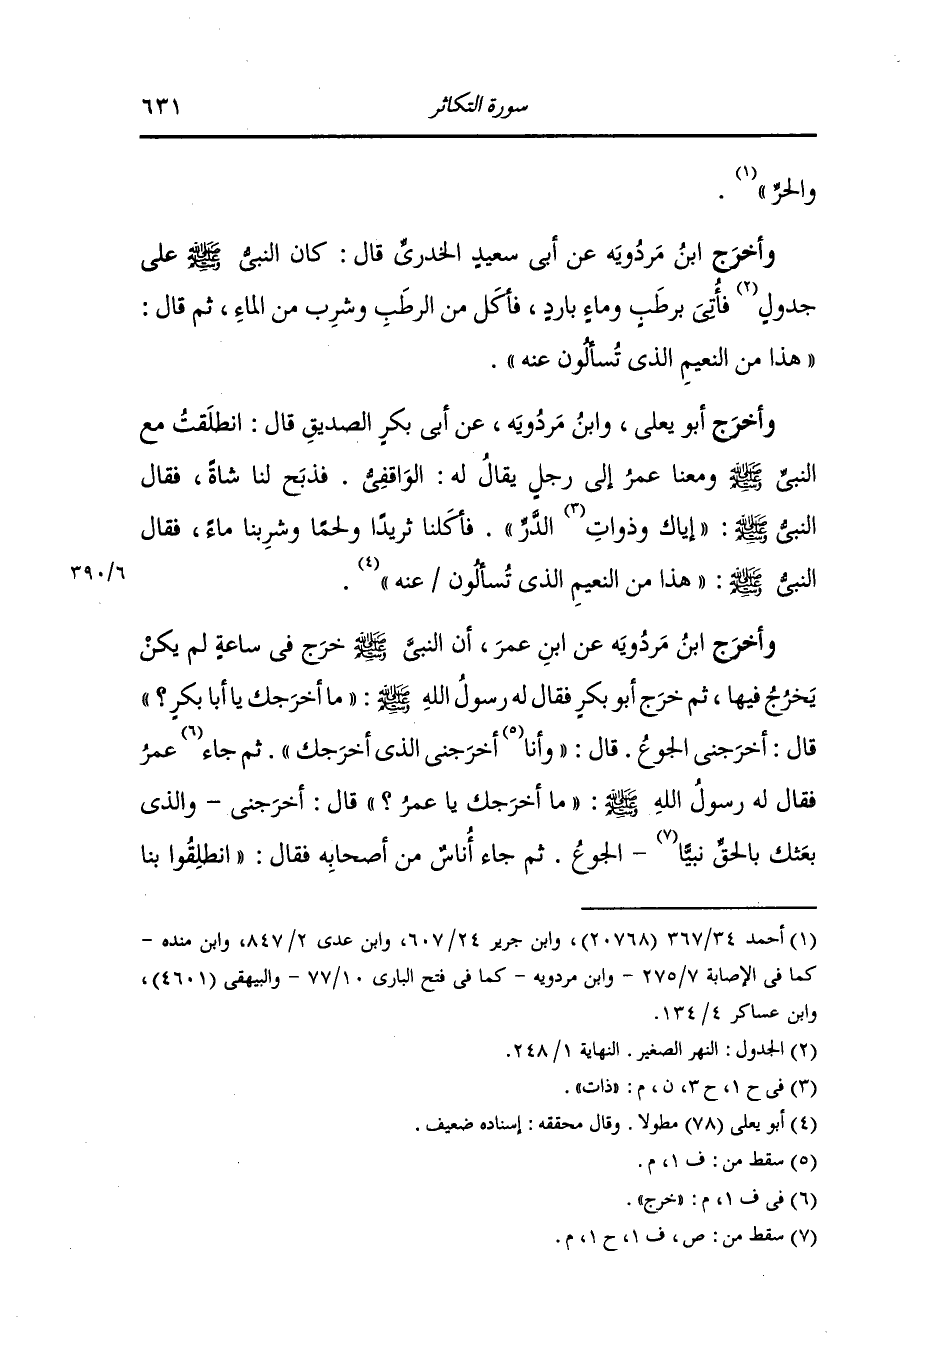 سورة التكاثر ٦٣١
والحرِّ »(١) .
وأخرَج ابنُ مَردُويَه عن أبى سعيدٍ الخدرىِّ قال : كان النبىُّ ﷺ على
جدولٍ(٢) فأُتِىَ برطَبٍ وماءٍ باردٍ ، فأكَل من الرطَبِ وشرِب من الماءِ ، ثم قال :
« هذا من النعيمِ الذى تُسألُون عنه » .
وأخرَج أبو يعلى ، وابنُ مَردُويَه ، عن أبى بكرٍ الصديقِ قال : انطلَقتُ مع
النبىِّ ﷺ ومعنا عمرُ إلى رجلٍ يقالُ له : الوَاقفِىُّ . فذبَح لنا شاةً ، فقال
النبىُّ ﷺ : « إياك وذواتِ(٣) الدَّرِّ » . فأكَلنا ثريدًا ولحمًا وشرِبنا ماءً ، فقال
النبىُّ ﷺ : « هذا من النعيمِ الذى تُسألُون / عنه »(٤) . ٣٩٠/٦
وأخرَج ابنُ مَردُويَه عن ابنِ عمرَ ، أن النبىَّ ﷺ خرَج فى ساعةٍ لم يكنْ
يَخرُجُ فيها ، ثم خرَج أبو بكرٍ فقال له رسولُ اللهِ ﷺ : « ما أخرَجك يا أبا بكرٍ ؟ »
قال : أخرَجنى الجوعُ . قال : « وأنا(٥) أخرَجنى الذى أخرَجك » . ثم جاء(٦) عمرُ
فقال له رسولُ اللهِ ﷺ : « ما أخرَجك يا عمرُ ؟ » قال : أخرَجنى – والذى
بعَثك بالحقِّ نبيًّا(٧) – الجوعُ . ثم جاء أُناسٌ من أصحابِه فقال : « انطلِقُوا بنا
(١) أحمد ٣٦٧/٣٤ (٢٠٧٦٨)، وابن جرير ٦٠٧/٢٤، وابن عدى ٨٤٧/٢، وابن منده –
كما فى الإصابة ٢٧٥/٧ – وابن مردويه – كما فى فتح البارى ٧٧/١٠ – والبيهقى (٤٦٠١)،
وابن عساكر ١٣٤/٤.
(٢) الجدول : النهر الصغير . النهاية ٢٤٨/١.
(٣) فى ح ١، ح ٣، ن ، م : «ذات» .
(٤) أبو يعلى (٧٨) مطولا . وقال محققه : إسناده ضعيف .
(٥) سقط من : ف ١، م .
(٦) فى ف ١، م : «خرج» .
(٧) سقط من : ص ، ف ١، ح ١، م .